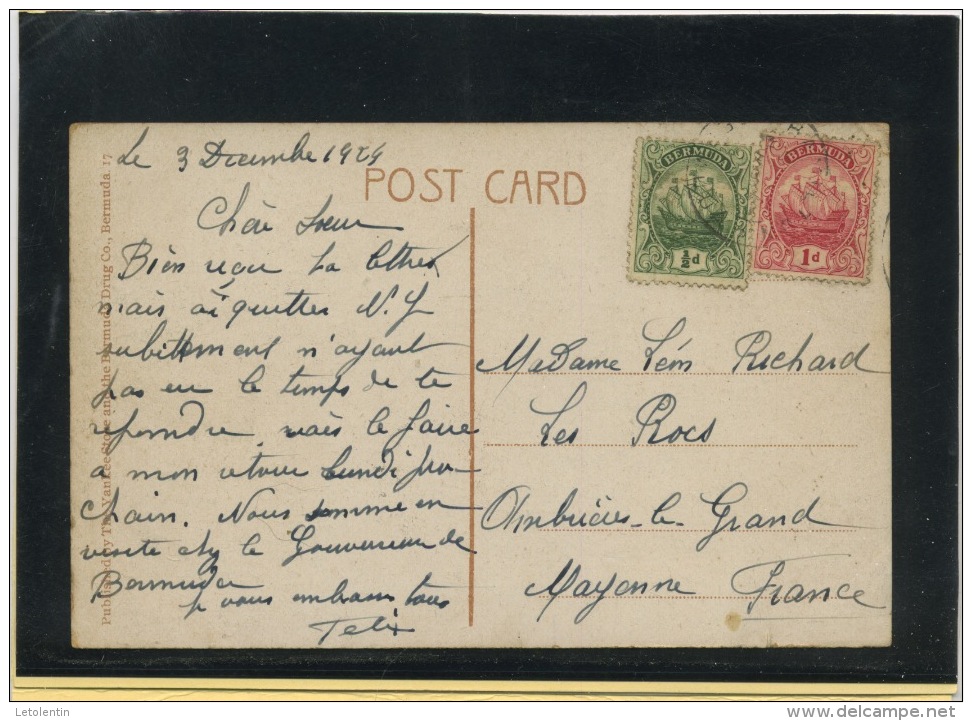 Le 3 Décembre 1924
POST CARD
BERMUDA
½d
BERMUDA
1d
Chère Soeur
Bien reçu ta lettre
mais ai quitter N.Y
subittement n'ayant
pas eu le temps de te
repondre, vais le faire
a mon retour Lundi pro
chain. Nous somme en
visite chez le Gouverneur de
Bermuda
je vous embrasse tous
Felix
Madame Léon Richard
Les Rocs
Ambrières-le-Grand
Mayenne France
Published by The Yankee Store and the Bermuda Drug Co., Bermuda 17
Letolentin
www.delcampe.net